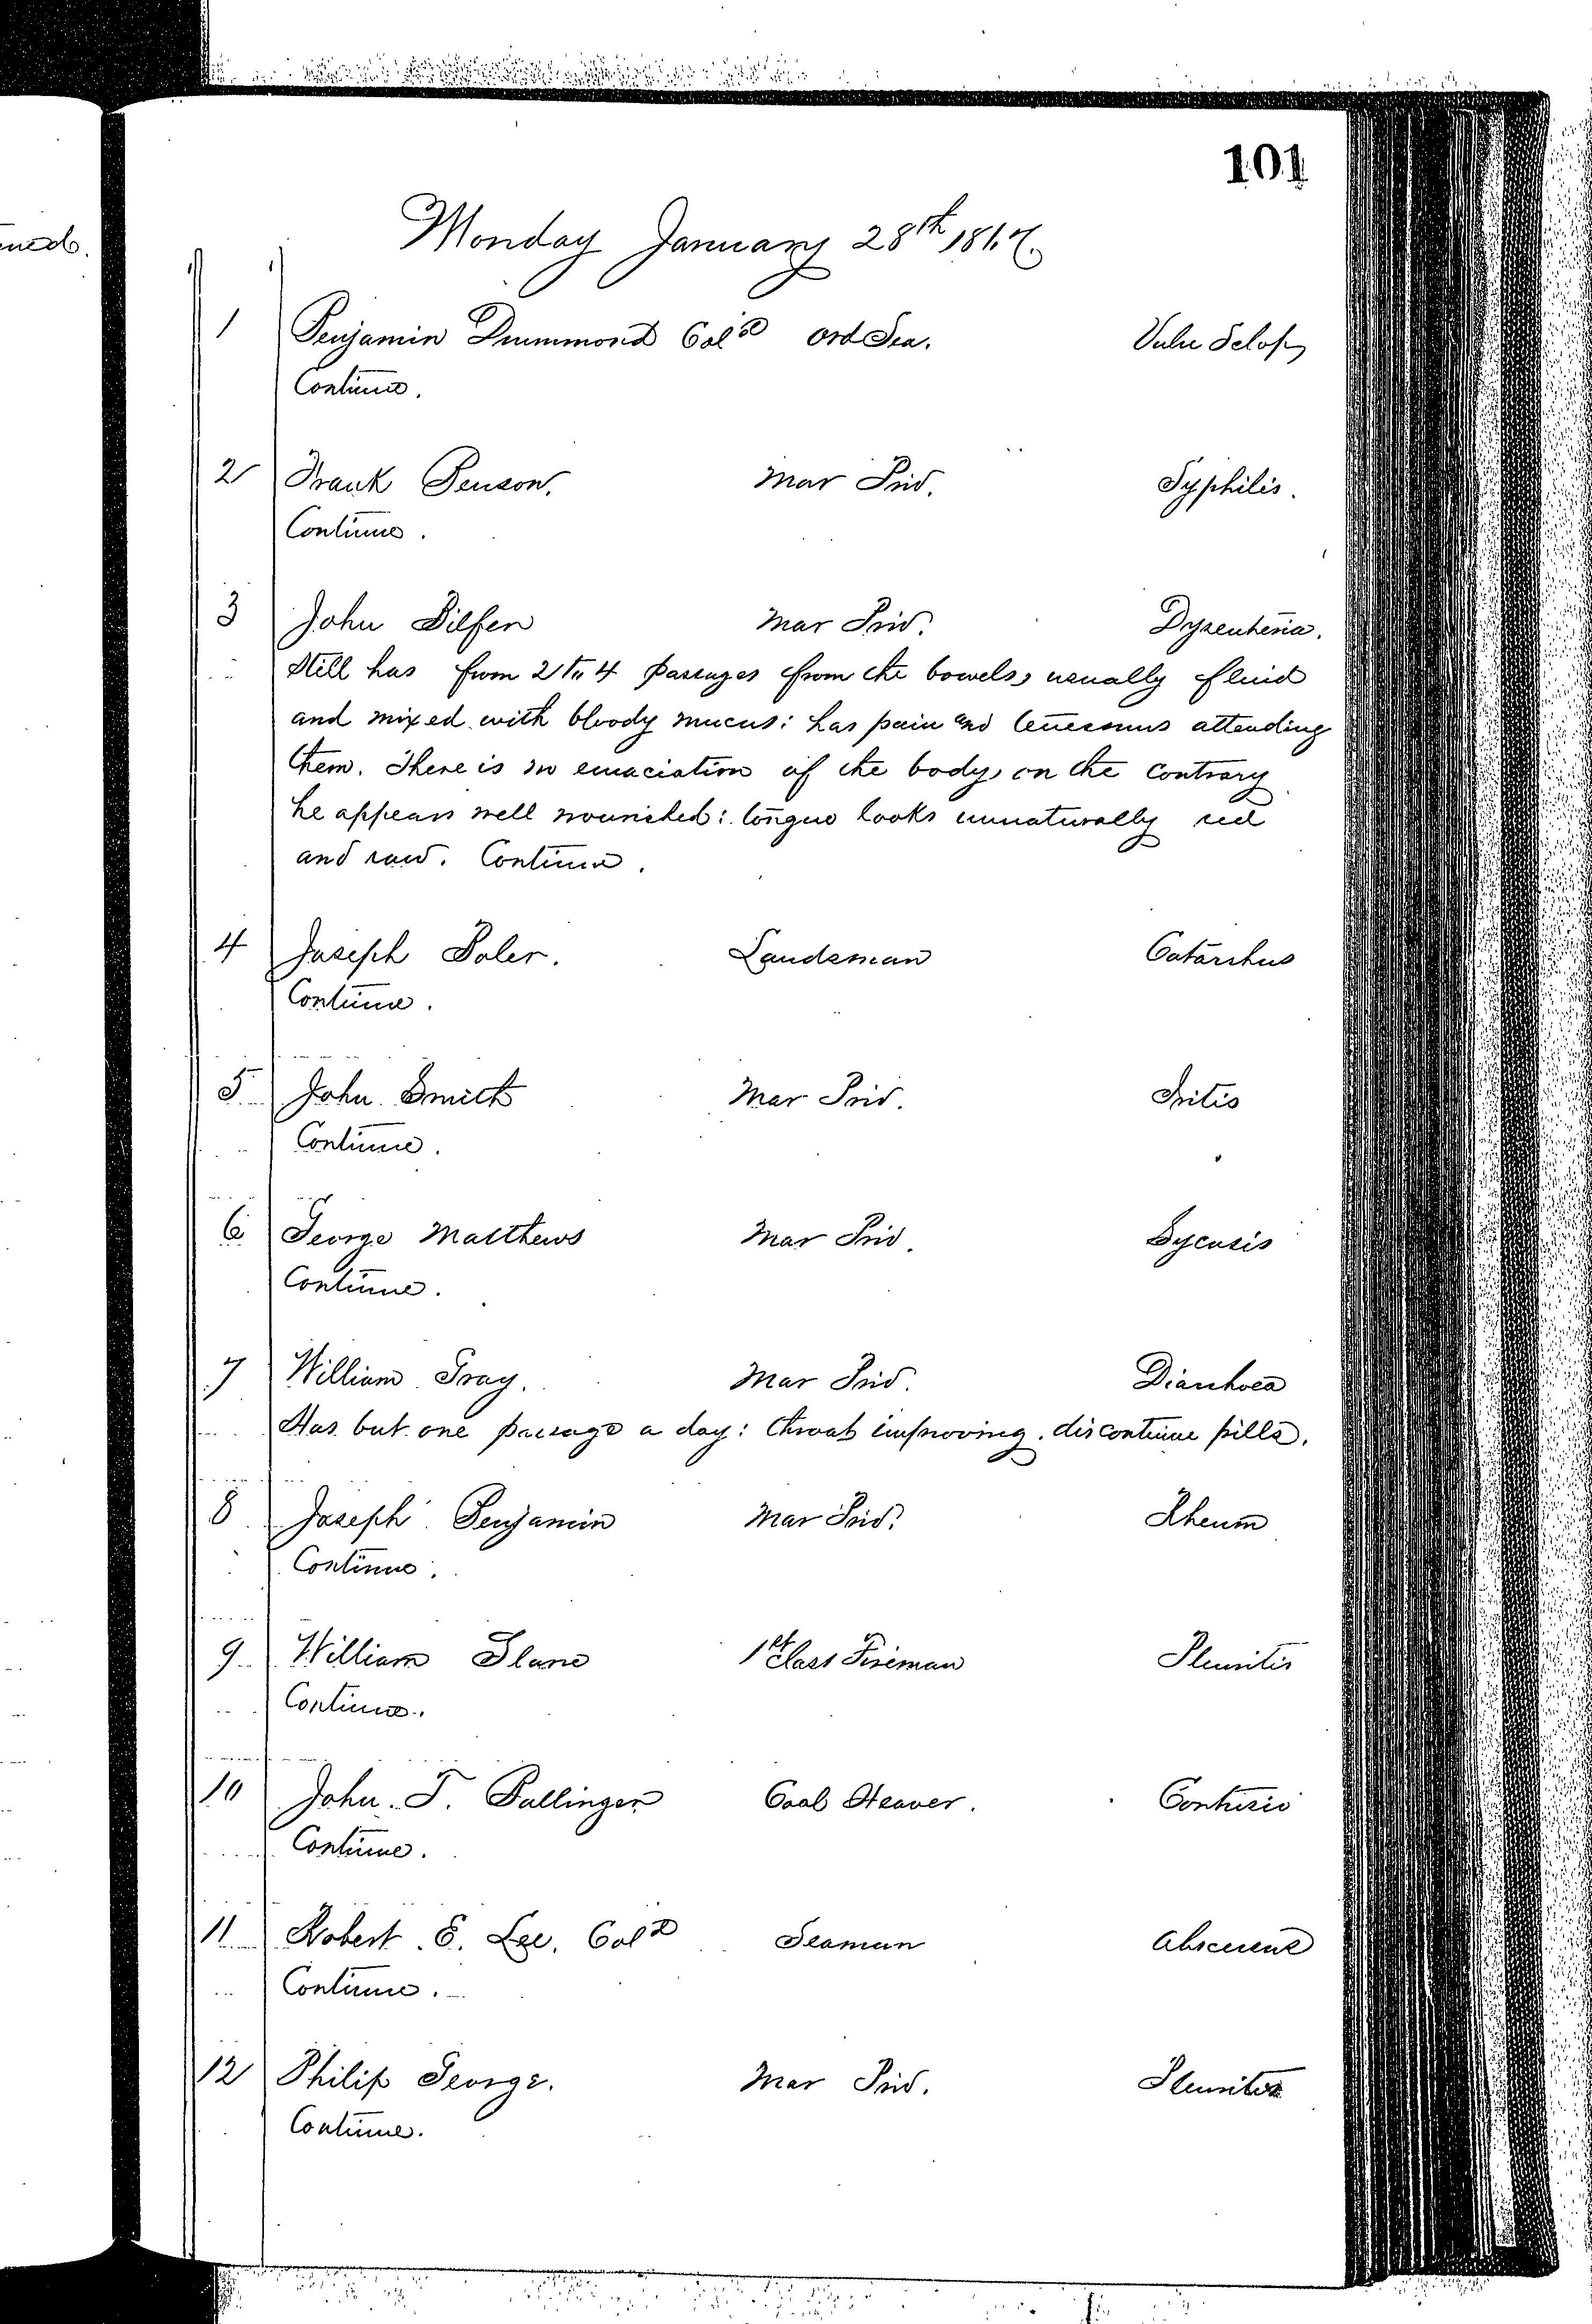 101
Monday January 28th 1867.
ned.
1 Benjamin Drummond Cold Ord Sea. Vuln Sclop
Continue.
2 Frank Benson. Mar Priv. Syphilis.
Continue.
3 John Dilfer Mar Priv. Dysenteria.
Still has from 2 to 4 passages from the bowels, usually fluid
and mixed with bloody mucus: has pain and tenesmus attending
them. There is no emaciation of the body, on the contrary
he appears well nourished: tongue looks unnaturally red
and raw. Continue.
4 Joseph Boler. Landsman Catarrhus
Continue.
5 John Smith Mar Priv. Iritis
Continue.
6 George Matthews Mar Priv. Sycosis
Continue.
7 William Gray. Mar Priv. Diarrhoea
Has but one passage a day: throat improving. discontinue pills.
8 Joseph Benjamin Mar Priv. Rheum
Continue.
9 William Slane 1st Class Fireman Pleuritis
Continue.
10 John. T. Ballinger Coal Heaver. Contusio
Continue.
11 Robert. E. Lee. Cold Seaman
Continue.
12 Philip George. Mar Priv. Pleuritis
Continue.